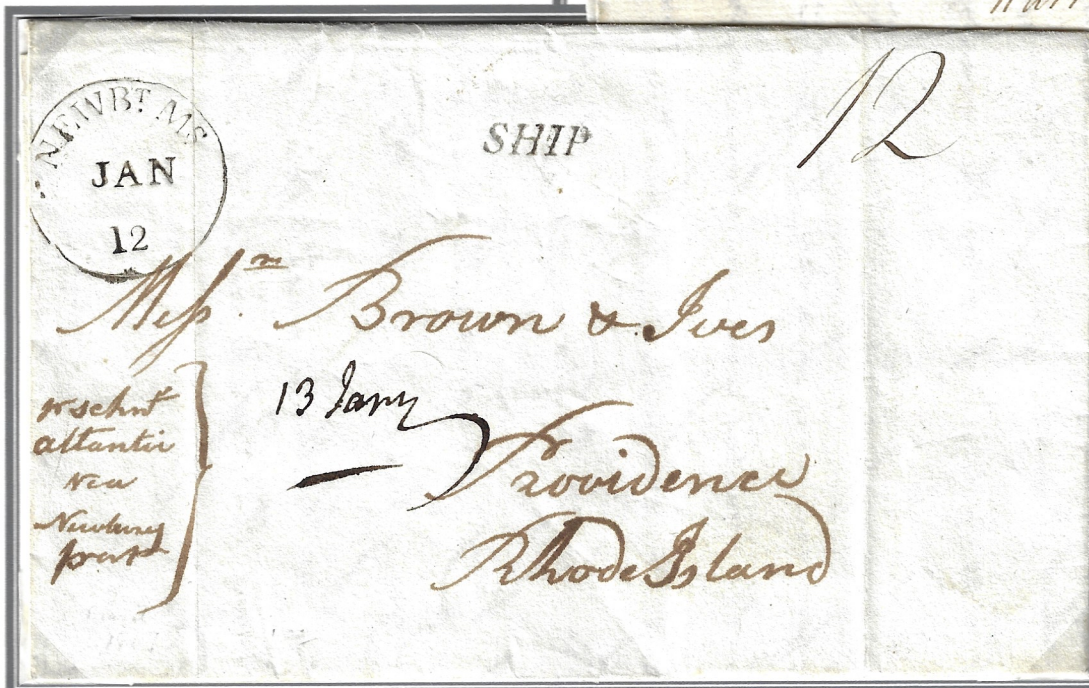 NEWBT MS
JAN
12
SHIP
12
Messrs Brown & Ives
13 Jany
Providence
Rhode Island
pr schnr
atlantic
via
Newbury
port